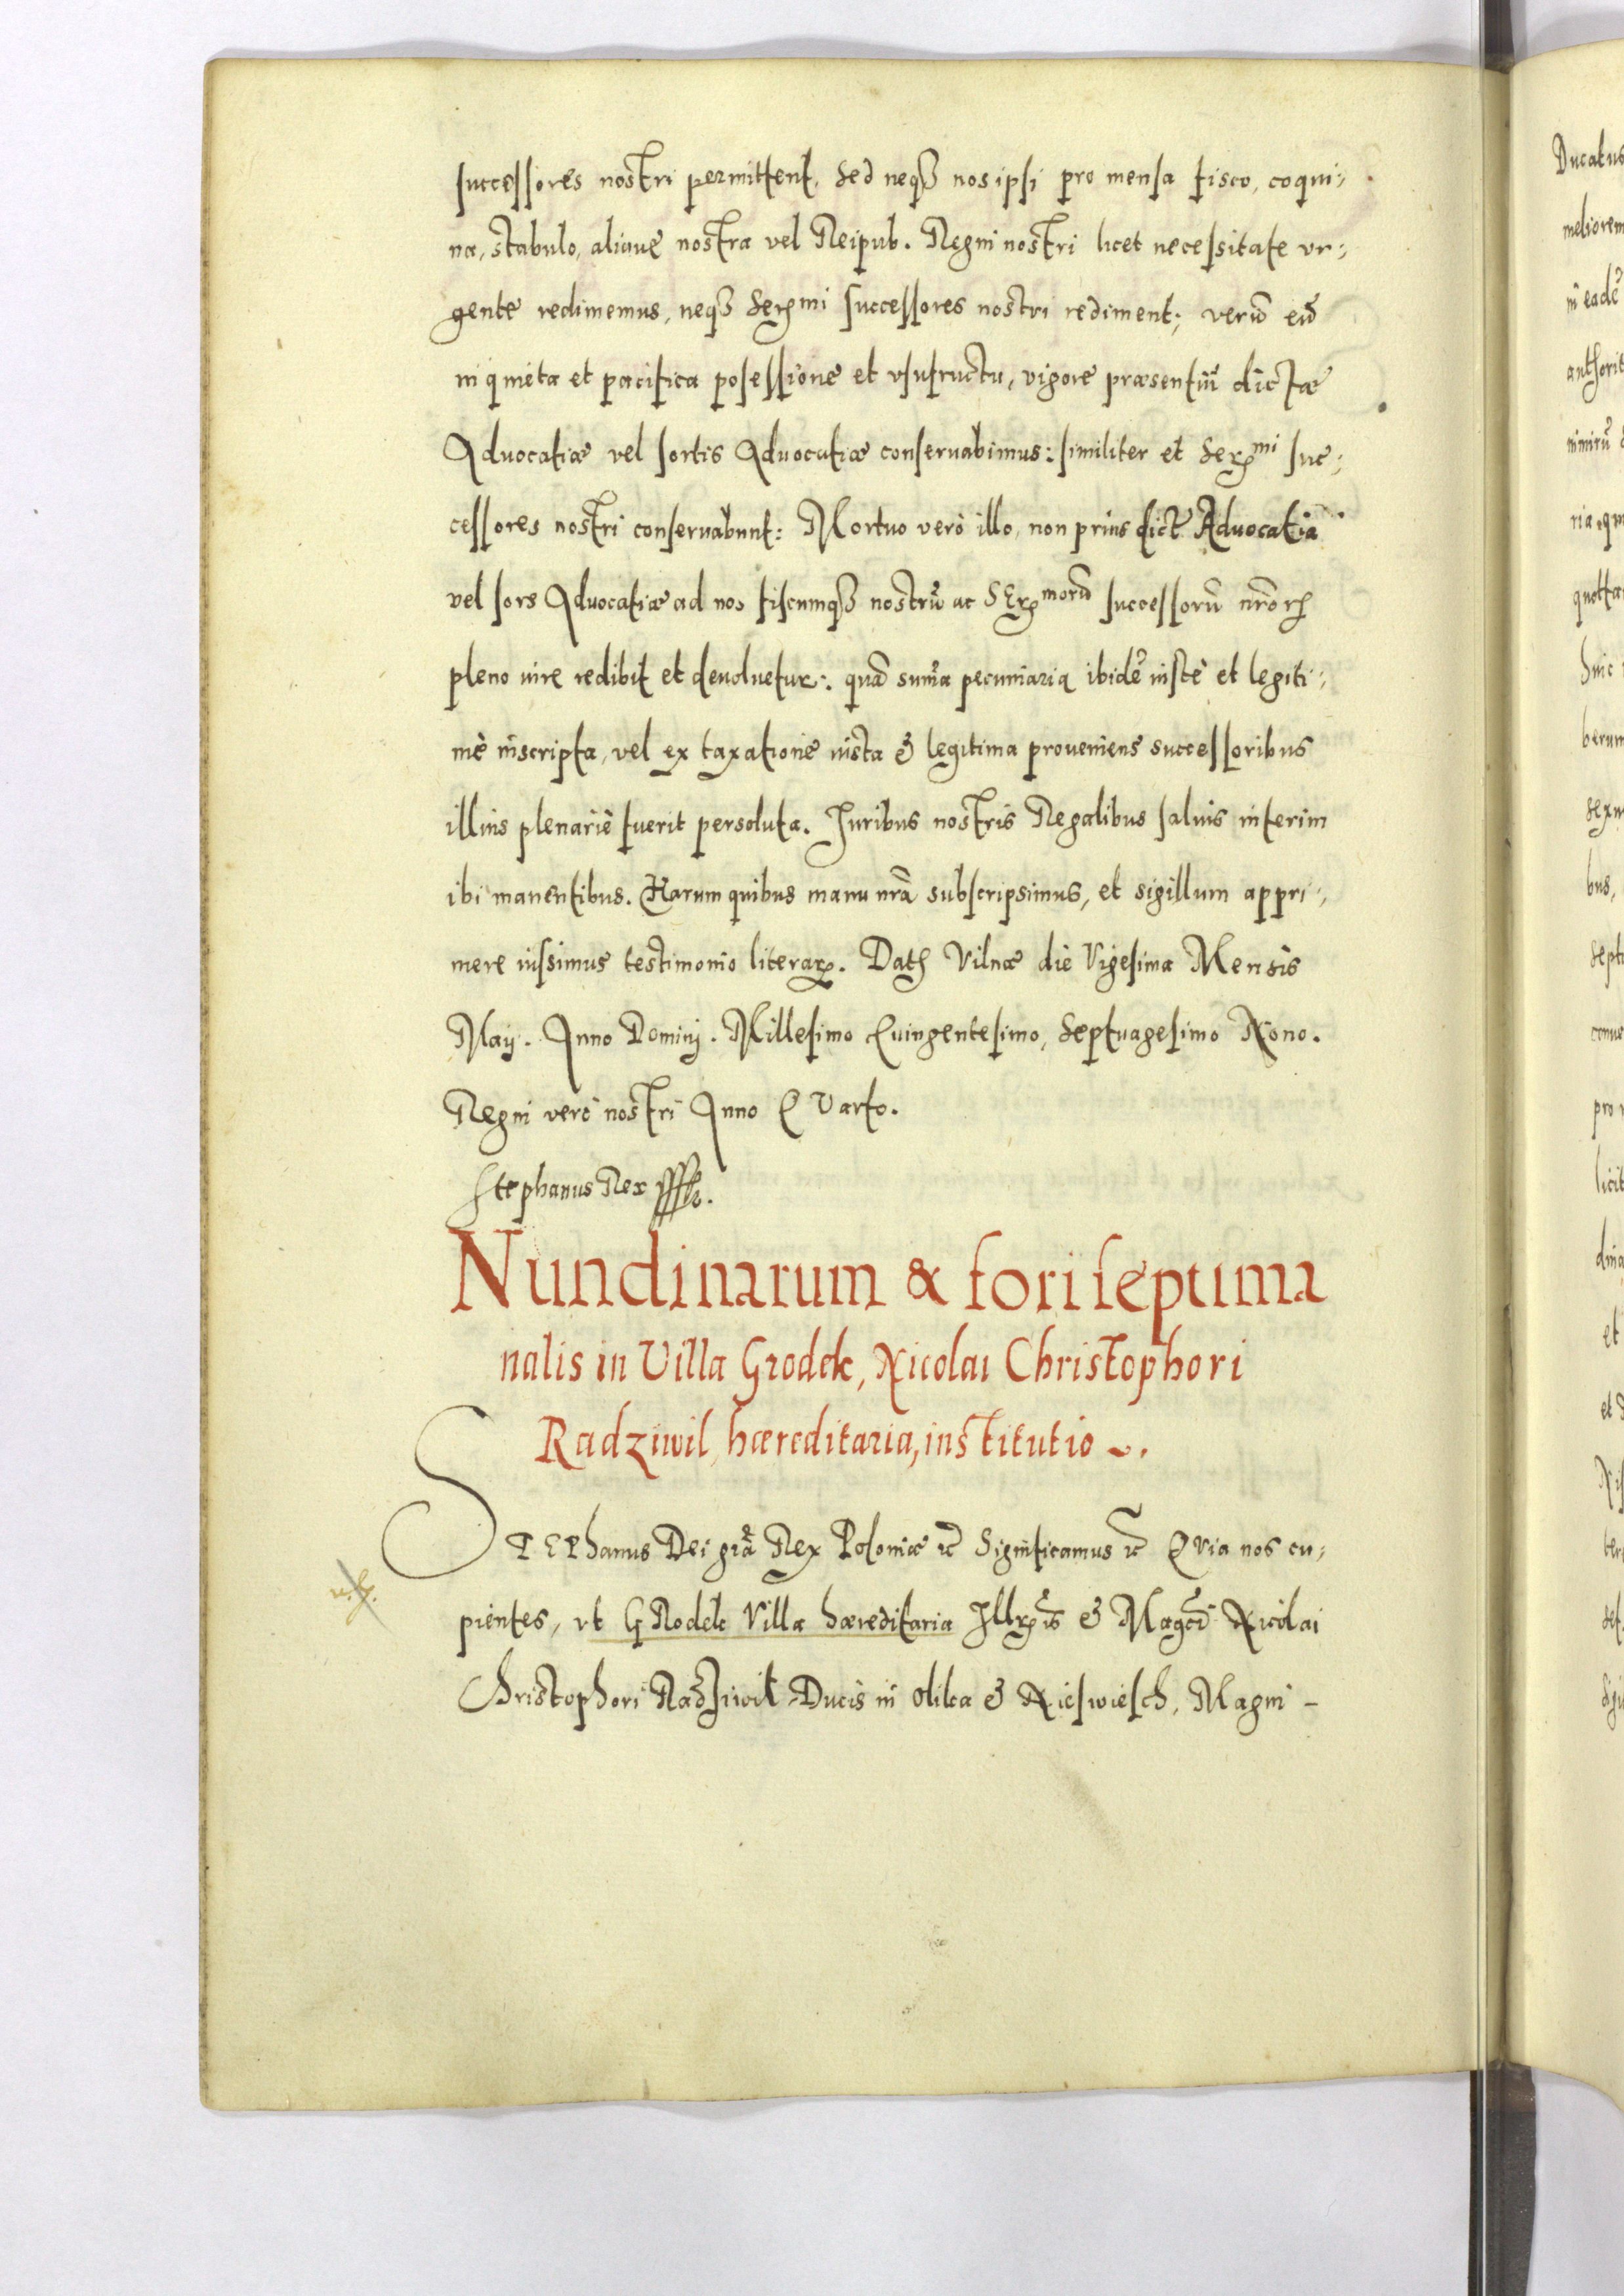 successores nostri permittent. Sed neq₃ nos ipsi pro mensa fisco, coqui-
na, stabulo, aliaue nostra vel Reipub. Regni nostri licet necessitate vr-
gente redimemus, neq₃ Serᵐⁱ successores nostri rediment; verũ eũ
in quieta et pacifica posessione et vsufructu, vigore præsentiũ dictæ
Aduocatiæ vel sortis Aduocatiæ conseruabimus: similiter et Serᵐⁱ suc-
cessores nostri conseruabunt: Mortuo verò illo, non prius dict Aduocatia
vel sors Aduocatiæ ad nos fiscumq₃ nostrũ ac SErᵐᵒʳũ successorũ nrõꝝ
pleno iure redibit et deuoluetur: quã sum̃a pecuniaria ibidẽ iustè et legiti-
mè inscripta, vel ex taxatione iusta & legitima proueniens successoribus
illius plenariè fuerit persoluta. Juribus nostris Regalibus saluis interim
ibi manentibus. Harum quibus manu nrã subscripsimus, et sigillum appri-
mere iussimus testimonio literaꝝ. Datꝭ Vilnæ die Vigesima Mensis
Maij. Anno Dominj. Millesimo Quingentesimo, Septuagesimo Nono.
Regni verò nostri Anno QVarto.
Stephanus Rex
Nundinarum & fori septima
nalis in Villa Grodek, Nicolai Christophori
Radziwil, hæreditaria, institutio
STEPhanus Dei grã Rex Poloniæ &c̃ Significamus &c̃ QVia nos cu-
pientes, vt GRodek Villa hæreditaria Illris & Magcĩ Nicolai
Christophori Radziwil Ducis in Olika & Nieswiesch, Magni -
Ducatus
meliorem
in eadẽ
authorit
nimirũ
huic
berum
bus,
pro
licit
et
et